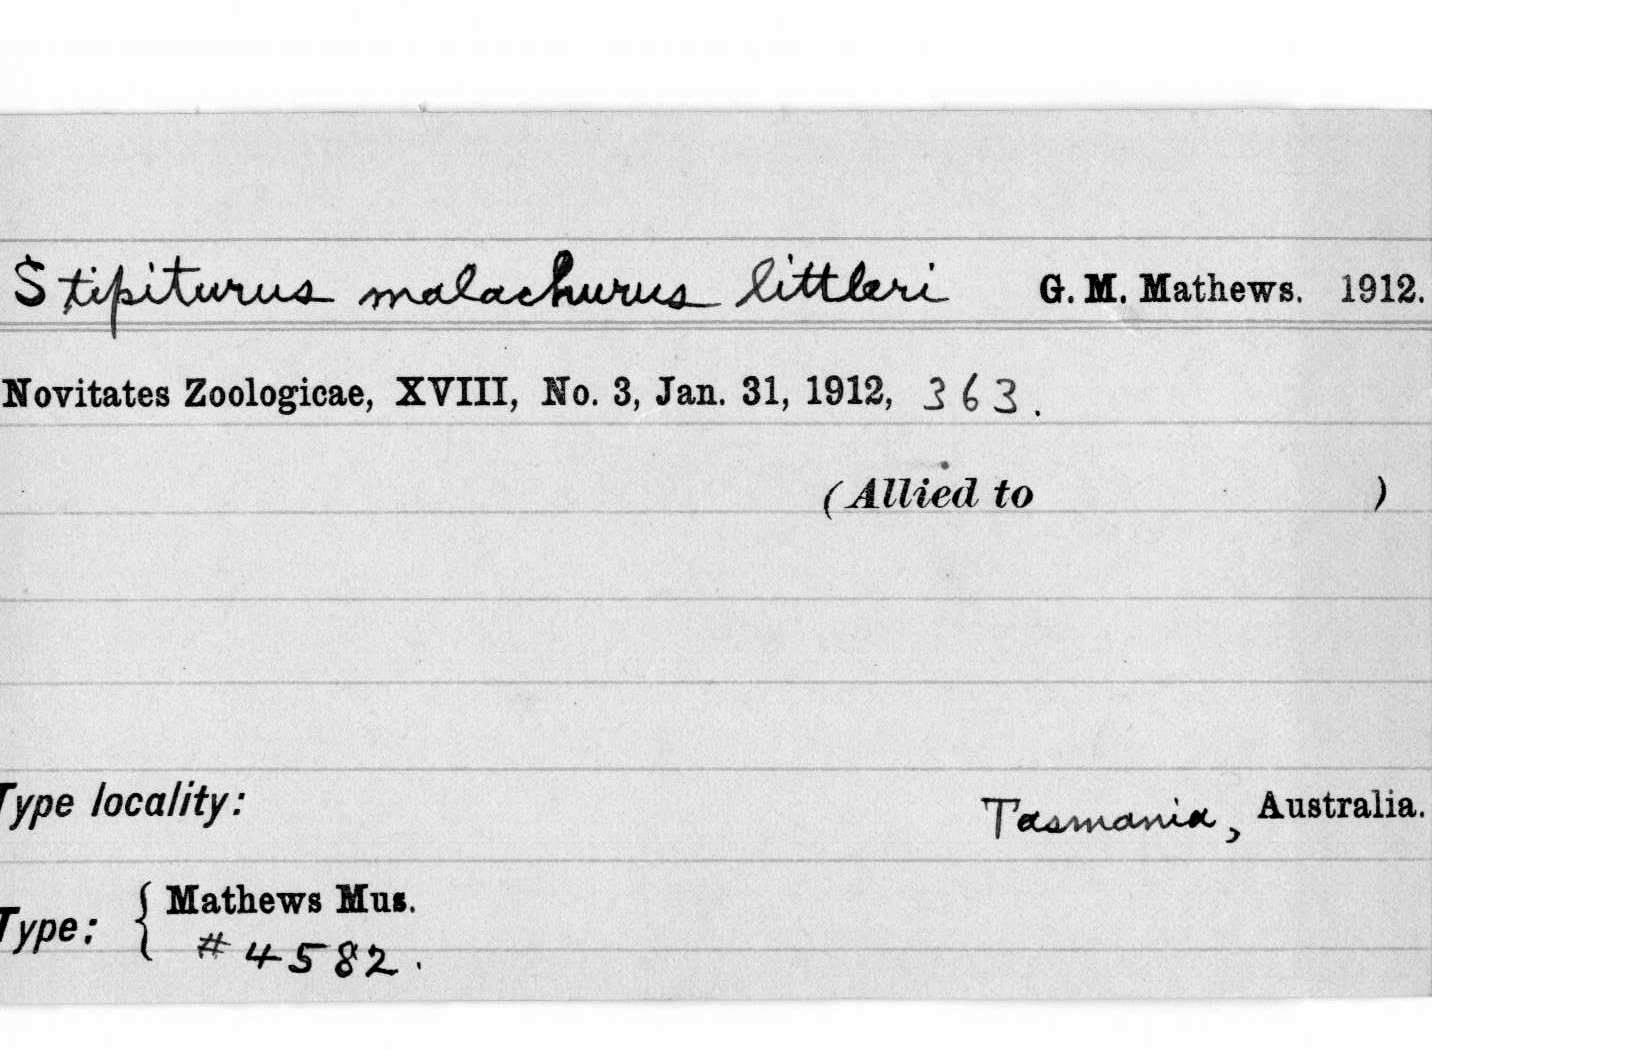 Stipiturus malachurus littleri G. M. Mathews. 1912.
Novitates Zoologicae, XVIII, No. 3, Jan. 31, 1912, 363.
(Allied to )
Type locality: Tasmania, Australia.
Type: { Mathews Mus.
#4582.